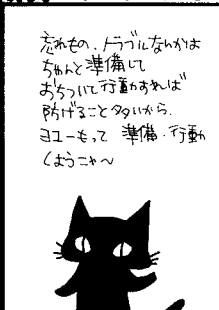 忘れもの、トラブルなんかは
ちゃんと準備して
おちついて行動すれば
防げること多いから、
ヨユーもって 準備・行動
しようニャ〜